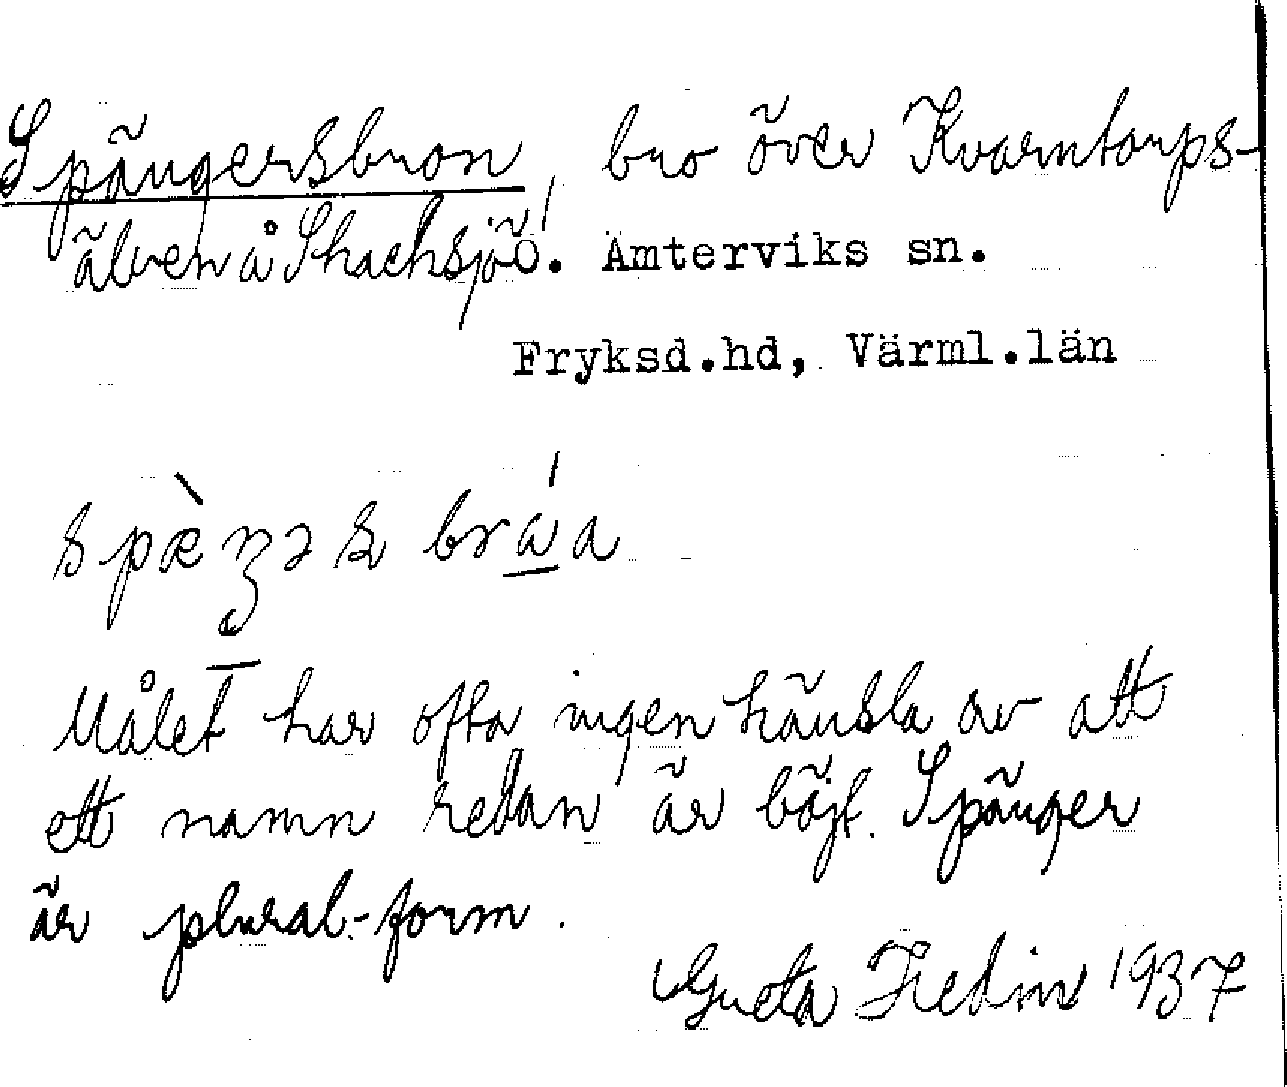 Spängersbron, bro över Kvarntorps-
älven å Skacksjö. Ämterviks sn.
Fryksd.hd, Värml.län
Målet har ofta ingen känsla av att
ett namn redan är böjt. Spänger
är plural-form.
Greta Hedin 1937